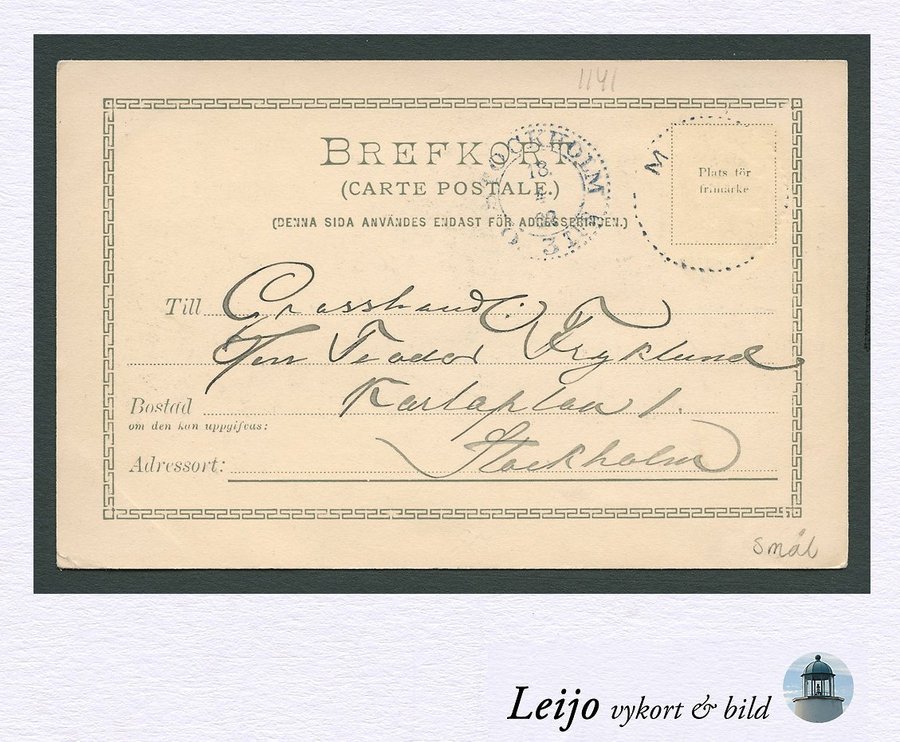 1141
BREFKORT
(CARTE POSTALE.)
(DENNA SIDA ANVÄNDES ENDAST FÖR ADRESSERINGEN.)
STOCKHOLM
18
M
Plats för
frimärke
Till Grosshandl:
Herr Teodor Fryklund
Bostad Karlaplan 1.
om den kan uppgifvas:
Adressort: Stockholm
Smål
Leijo vykort & bild